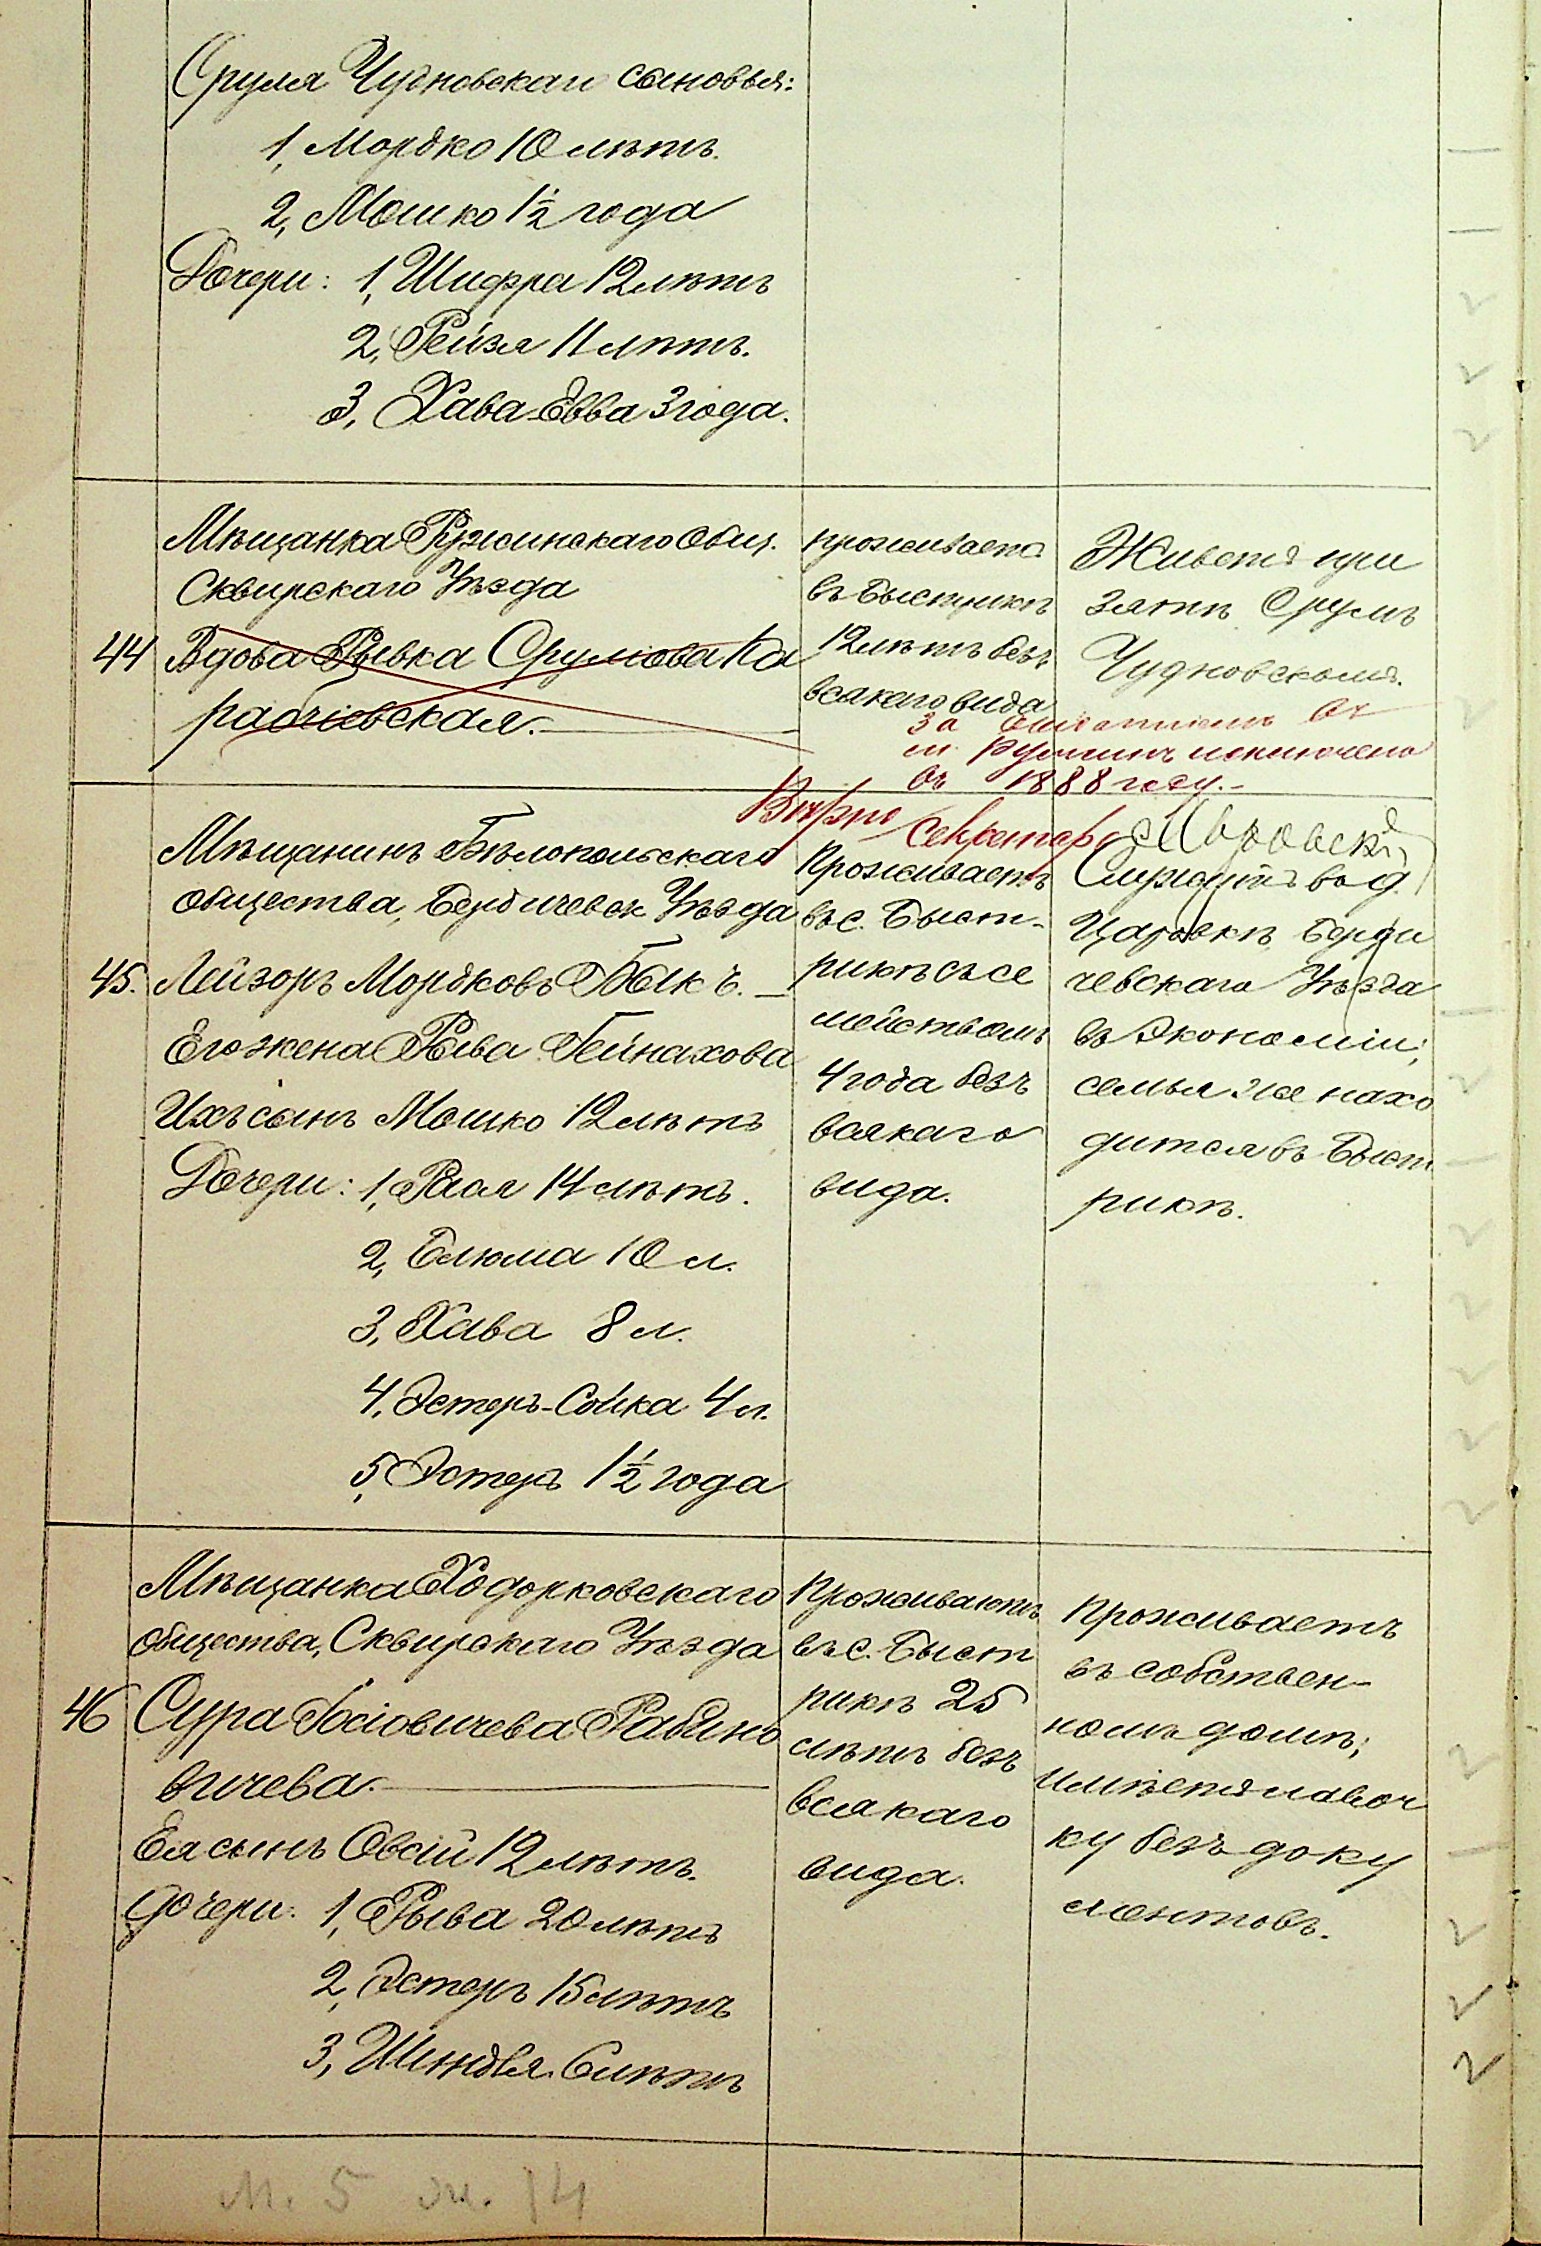 Сруля Чудновскаго сыновья:
1, Мордко 10 лѣтъ.
2, Мошко 1½ года
Дочери: 1, Шифра 12 лѣтъ
2, Рейзя 11 лѣтъ.
3, Хава-Евва 3 года.
Мѣщанка Ружинскаго Общ.
Сквирскаго Уѣзда
44 Вдова Рывка Срулева Ка
рабчіевская.
проживаетъ
въ Быстрикѣ
12 лѣтъ безъ
всякаго вида
Живетъ при
зятѣ Срулѣ
Чудновскомъ.
за
м. Ружинъ исключена
въ 1888 году.-
Вѣрно Секретарь
Мѣщанинъ Бѣлопольскаго
общества, Бердичевск Уѣзда
45. Лейзоръ Мордковъ Быкъ.
Его жена Рыва Гейнахова
Ихъ сынъ Мошко 12 лѣтъ
Дочери: 1, Рася 14 лѣтъ.
2, Блюма 10 л.
3, Хава 8 л.
4, Эстеръ-Сойка 4 л.
5, Эстеръ 1½ года
Проживаетъ
въ с. Быст-
рикѣ съ се
мействомъ
4 года безъ
всякаго
вида.
Служитъ в д.
Царовкѣ Берди
чевскаго Уѣзда
въ Экономіи;
семья же нахо
дится въ Быст
рикѣ.
Мѣщанка Ходорковскаго
общества, Сквирскаго Уѣзда
46 Сура Іосіовичева Рабино
вичева.
Ея сынъ Овсій 12 лѣтъ.
Дочери: 1, Рыва 20 лѣтъ
2, Эстеръ 15 лѣтъ
3, Шендля 6 лѣтъ
Проживаютъ
въ с. Быст
рикѣ 25
лѣтъ безъ
всякаго
вида.
Проживаетъ
въ собствен-
номъ домѣ;
имѣетъ лавоч
ку безъ доку
ментовъ.
м. 5 ж. 14